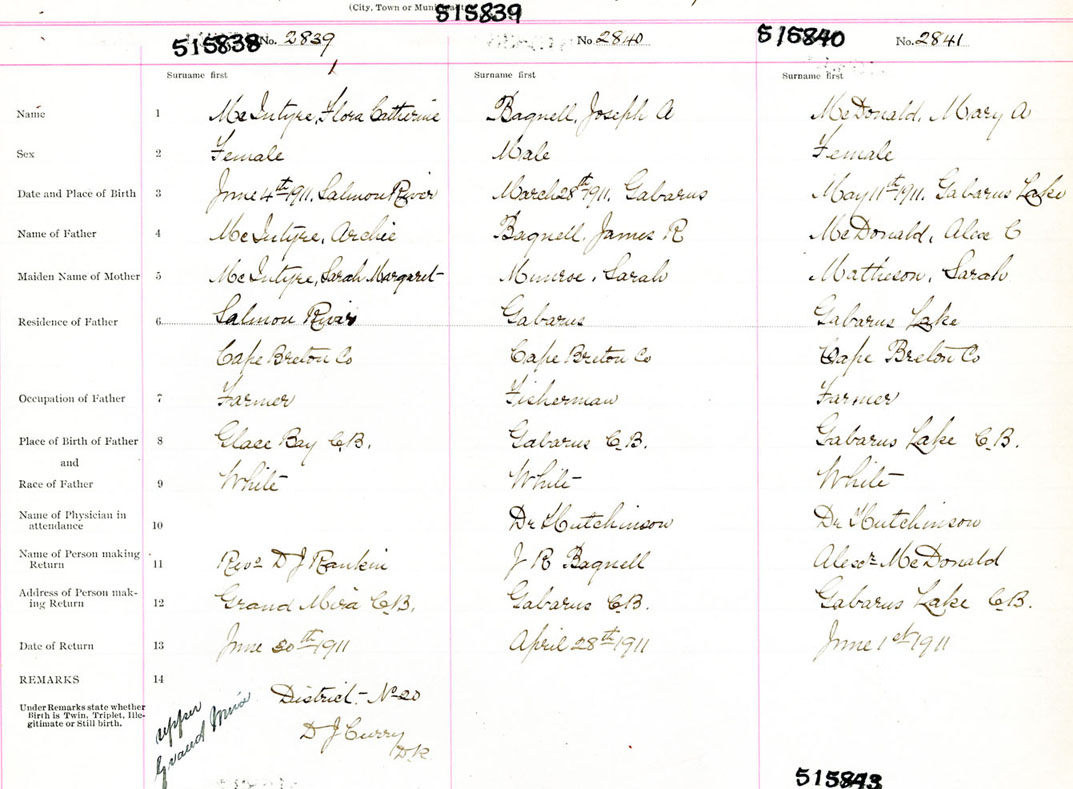 (City, Town or Municipality)
515839
515838 No. 2839
No 2840
515840 No. 2841
Surname first Surname first Surname first
Name 1 McIntyre, Flora Catherine Bagnell, Joseph A McDonald, Mary A
Sex 2 Female Male Female
Date and Place of Birth 3 June 4th 1911, Salmon River March 28th 1911, Gabarus May 11th 1911, Gabarus Lake
Name of Father 4 McIntyre, Archie Bagnell, James R McDonald, Alex C
Maiden Name of Mother 5 McIntyre, Sarah Margaret Munroe, Sarah Matheson, Sarah
Residence of Father 6 Salmon River Gabarus Gabarus Lake
Cape Breton Co Cape Breton Co Cape Breton Co
Occupation of Father 7 Farmer Fisherman Farmer
Place of Birth of Father 8 Glace Bay C.B. Gabarus C.B. Gabarus Lake C.B.
and
Race of Father 9 White White White
Name of Physician in
attendance 10 Dr Hutchinson Dr Hutchinson
Name of Person making
Return 11 Revd D J Rankin J R Bagnell Alexr McDonald
Address of Person mak-
ing Return 12 Grand Mira C.B. Gabarus C.B. Gabarus Lake C.B.
Date of Return 13 June 30th 1911 April 28th 1911 June 1st 1911
REMARKS 14
District - No 20
Under Remarks state whether
Birth is Twin, Triplet, Ille-
gitimate or Still birth.
upper
Grand Mira
D J Curry
D.R.
515843